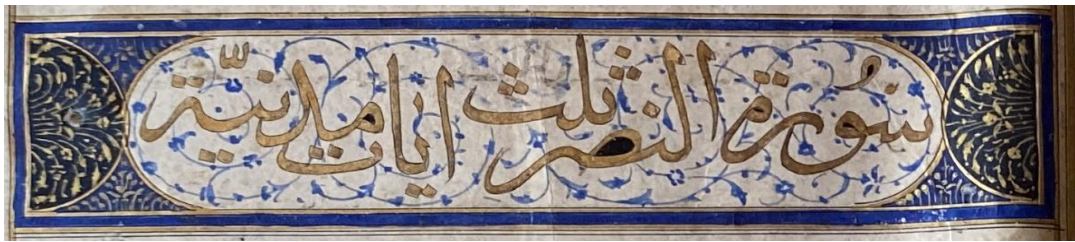 سُورة النصر ثلث ايات مدنيّة